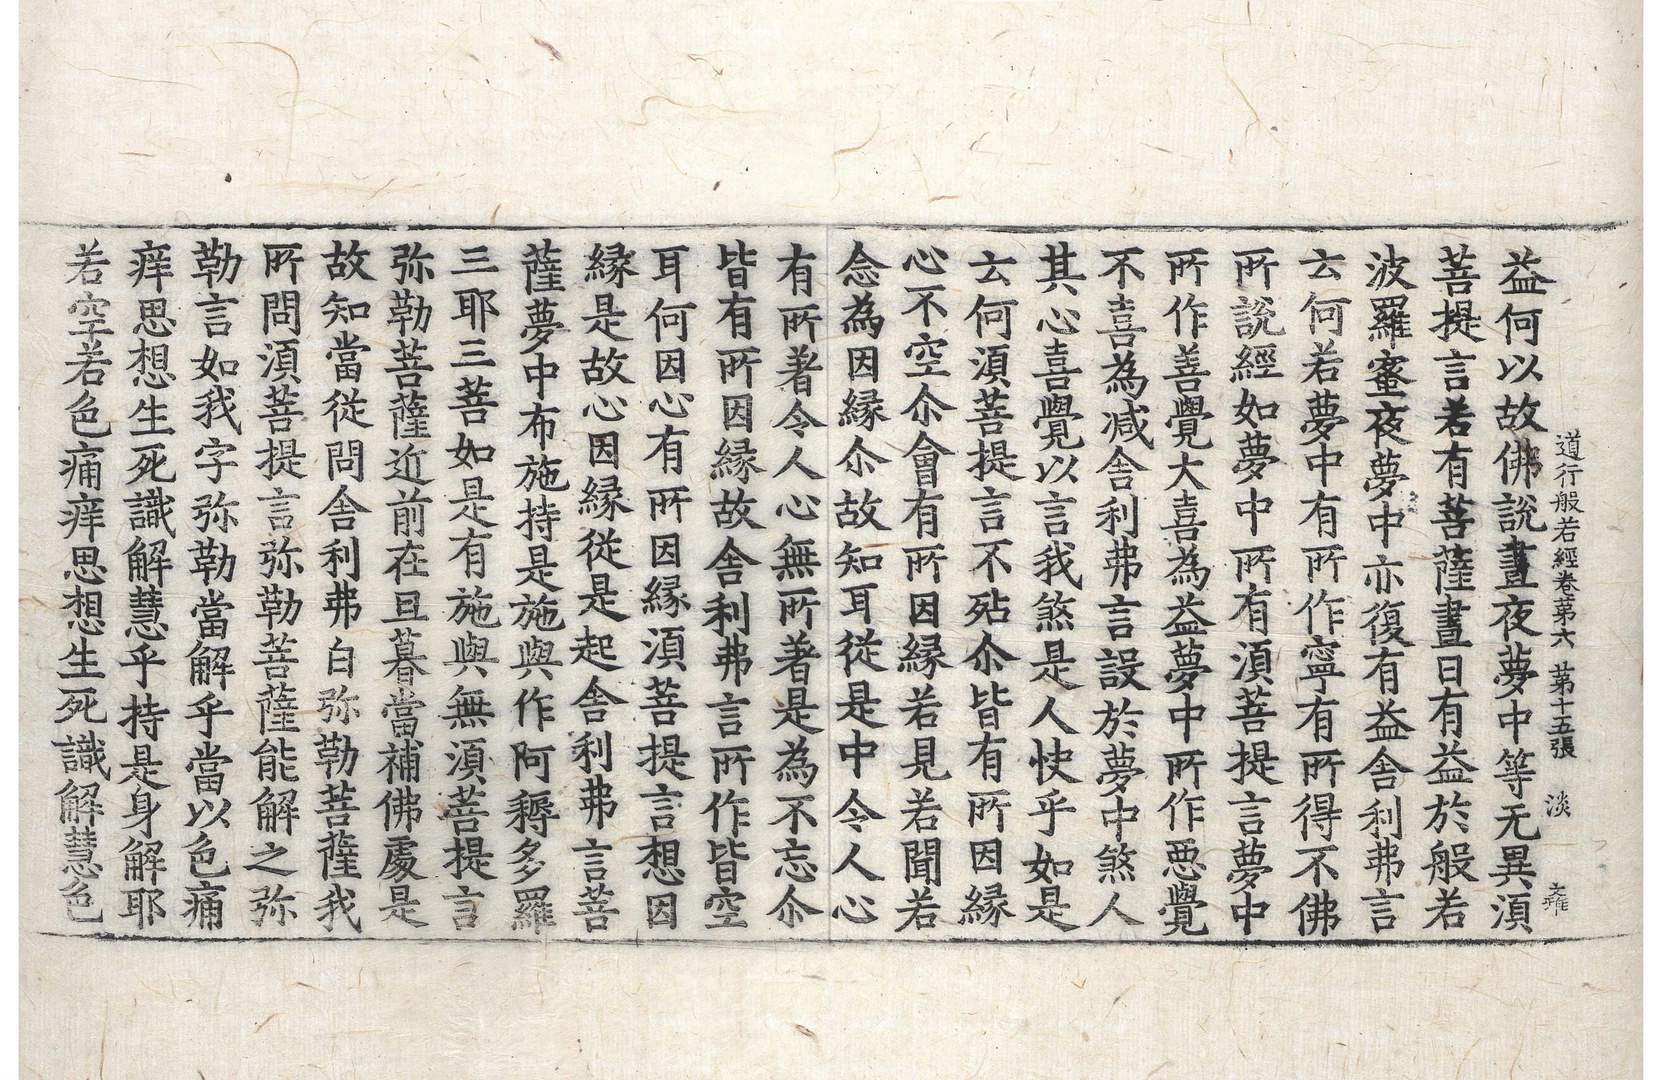 道行般若經卷第六 第十五張 淡
益何以故佛說晝夜夢中等无異湏
菩提言若有菩薩晝日有益於般若
波羅蜜夜夢中亦復有益舍利弗言
云何若夢中有所作寧有所得不佛
所說經如夢中所有湏菩提言夢中
所作善覺大喜為益夢中所作惡覺
不喜為減舍利弗言設於夢中煞人
其心喜覺以言我煞是人快乎如是
云何湏菩提言不㱠尒皆有所因緣
心不空尒會有所因緣若見若聞若
念為因緣尒故知耳從是中令人心
有所著令人心無所著是為不忘尒
皆有所因緣故舍利弗言所作皆空
耳何因心有所因緣湏菩提言想因
緣是故心因緣從是起舍利弗言菩
薩夢中布施持是施與作阿耨多羅
三耶三菩如是有施與無湏菩提言
弥勒菩薩近前在旦暮當補佛處是
故知當從問舍利弗白弥勒菩薩我
所問湏菩提言弥勒菩薩能解之弥
勒言如我字弥勒當解乎當以色痛
痒思想生死識解慧乎持是身解耶
若空若色痛痒思想生死識解慧色